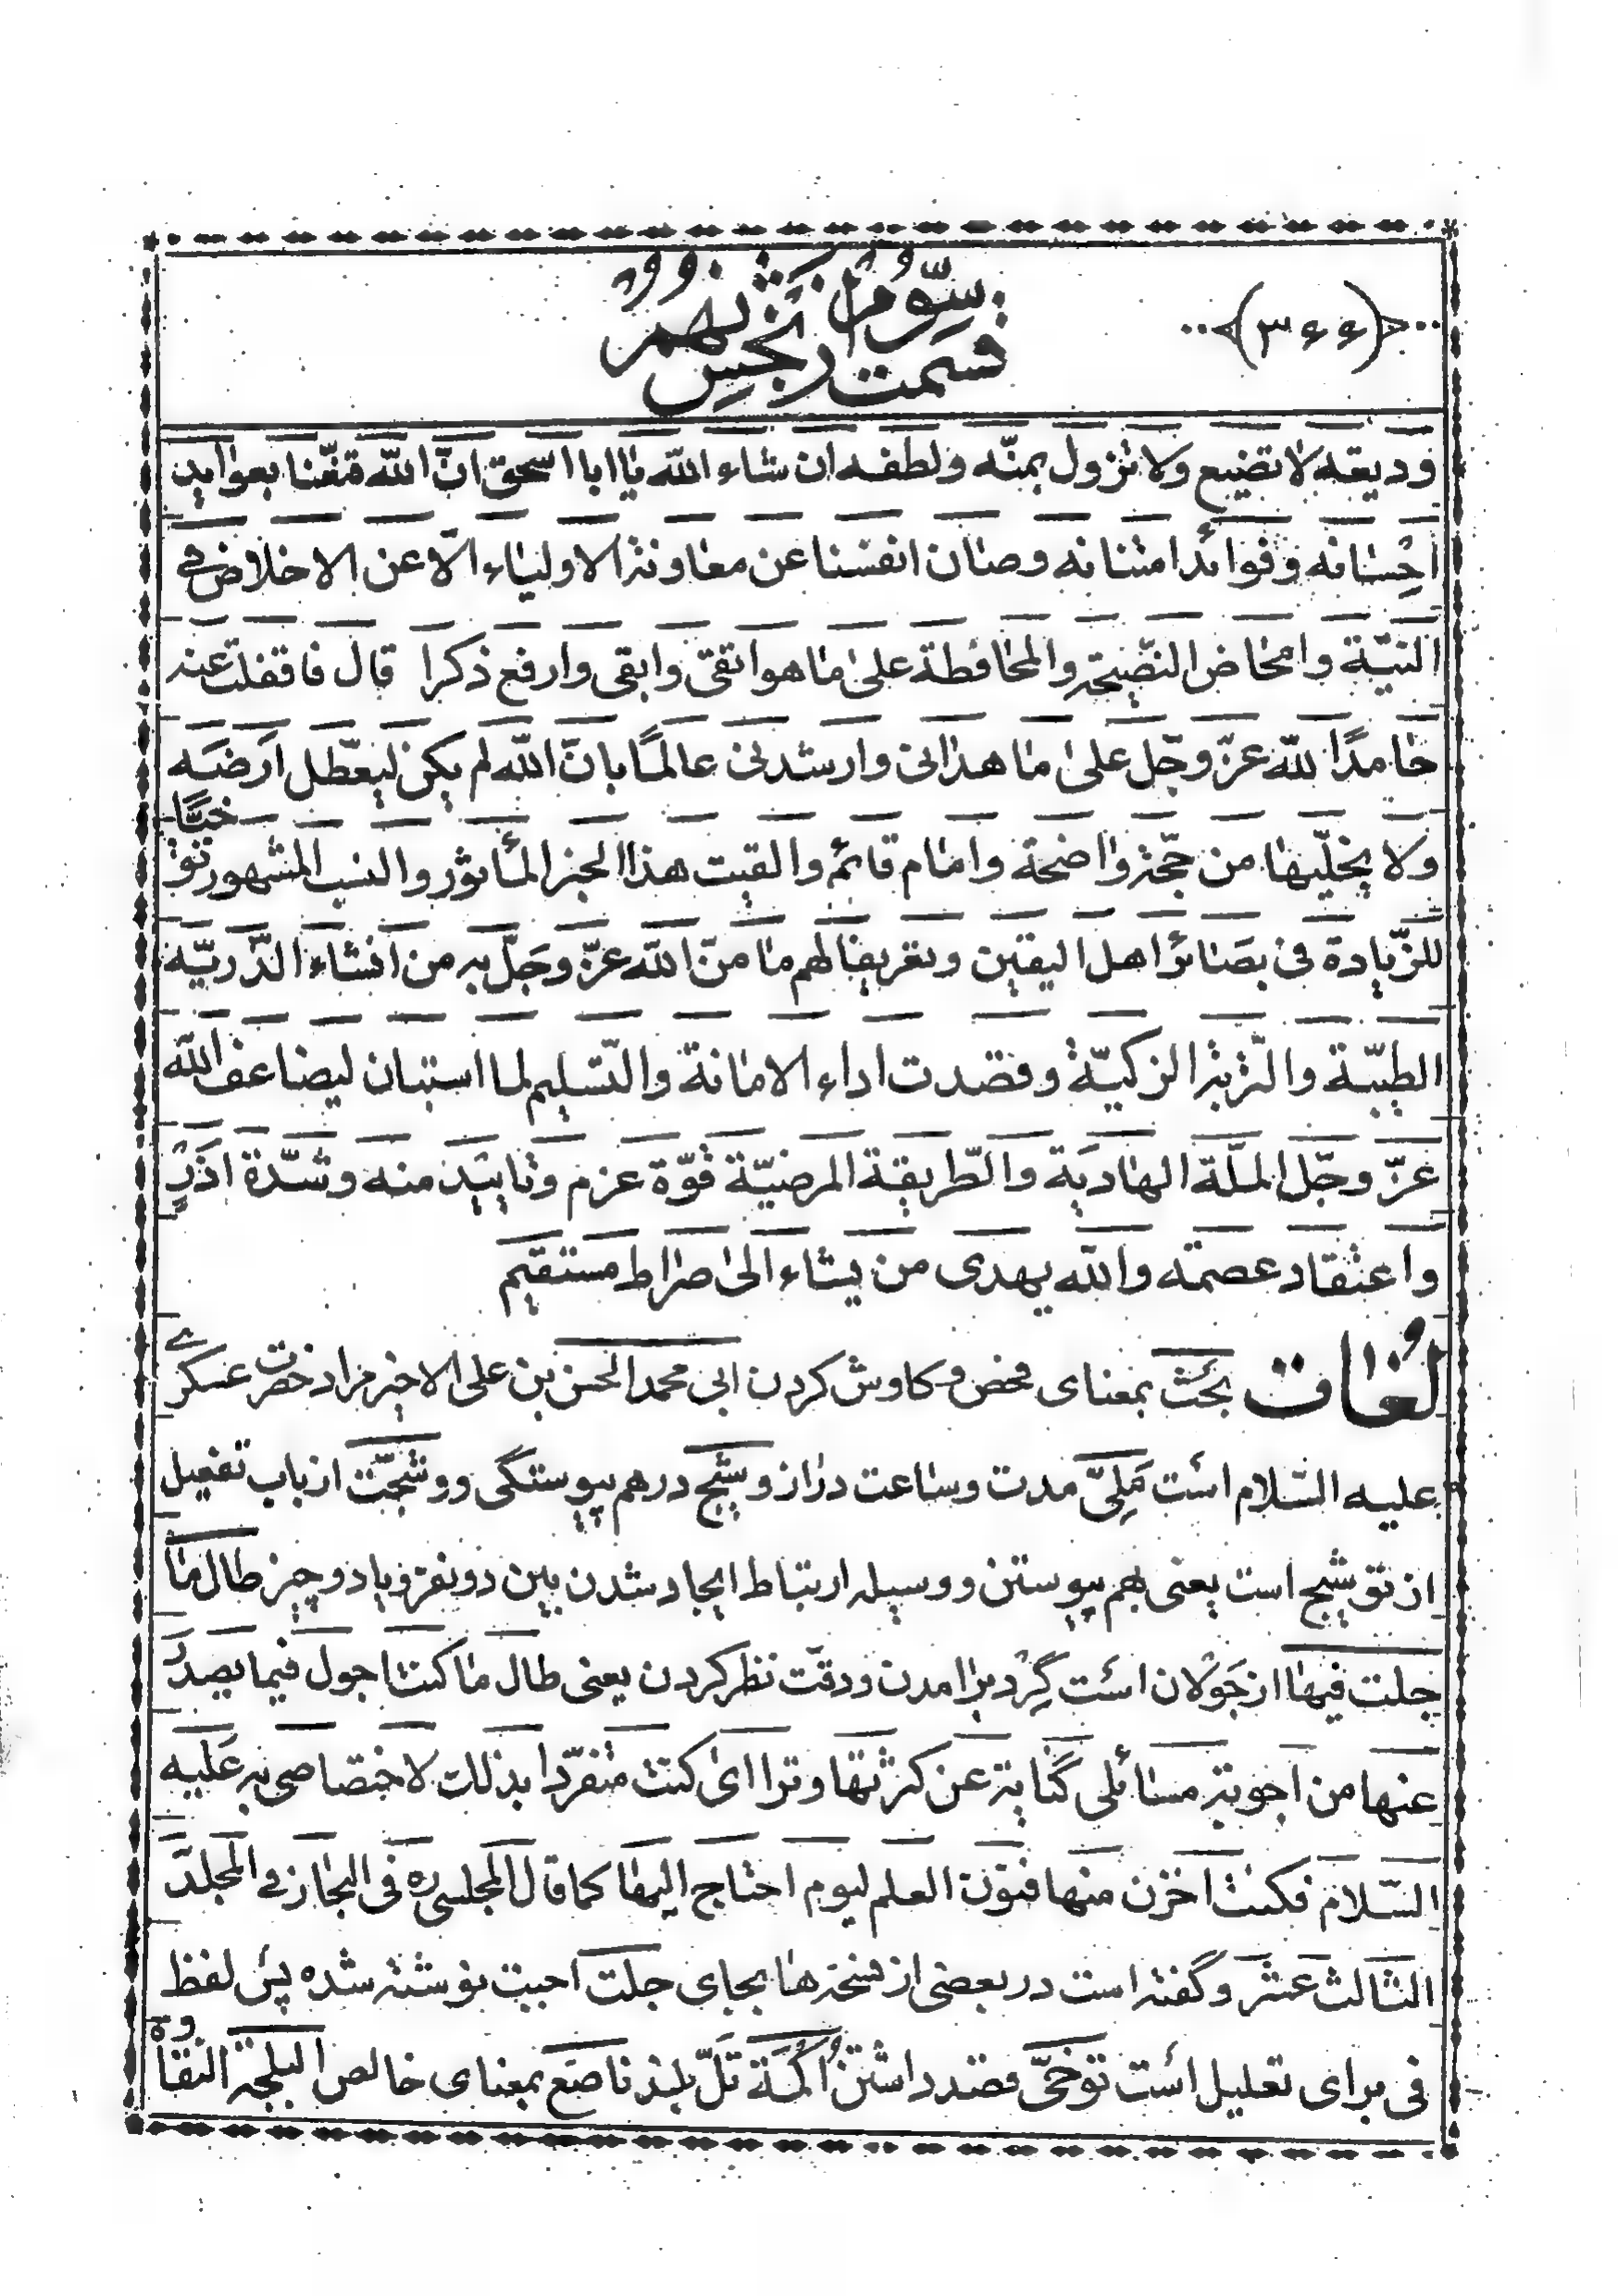 ﴿۳۶۶﴾
قسمت سوّم از بخش نهم
ودیعه لا تضیع ولا تزول بمنّه ولطفه ان شاء الله یا ابا اسحق انّ الله قنّعنا بعوایٔد
احسانه وفوائد امتنانه وصان انفسنا عن معاونة الاولیاء الّا عن الاخلاص فی
النیّة وامحاض النصّیحة والمحافظة علی ما هو اتقی وابقی وارفع ذکرا قال فاقفلت عنه
حامدًا للّه عزّ وجّل علی ما هدانی وارشدنی عالمًا بانّ الله لم یکن لیعّطل ارضه
ولا یخلّیها من حجّة واضحة وامام قائم والقیت هذا الخبر المأثور والنسب المشهور توخّیًا
للزّیادة فی بصائر اهل الیقین وتعریفا لهم ما منّ الله عزّ وجلّ به من انشاء الذّریّة
الطیبّة والتّربة الزکیّة وقصدت اداء الامانة والتّسلیم لما استبان لیضاعف الله
عزّ وجّل الملّة الهادیة والطّریقة المرضیّة قوّة عزم وتایید منه وشدّة ازر
واعتقاد عصمة والله یهدی من یشاء الی صراط مستقیم
لغات بحث بمعنای فحص و کاوش کردن ابی محمد الحسن بن علی الاخیر مراد حضرت عسکری
علیه السّلام است مَلِیّ مدت و ساعت دراز وشیج درهم پیوستگی ووشجّت از باب تفعیل
از توشیج است یعنی بهم پیوستن و وسیله ارتباط ایجاد شدن بین دو نفر و یا دو چیز طال ما
جلت فیها از جَوَلان است گِرد برامدن و دقّت نظر کردن یعنی طال ما کنت اجول فیما یصدر
عنها من اجوبة مسائلی کنایة عن کثرتها وترا ای کنت متفرّدا بذلک لاختصاصی به علیه
السّلام فکنت اخزن منها فنون العلم لیوم احتاج الیها کما قال المجلسی ره فی البحار فی المجلّد
الثالث عشر و گفته است در بعضی از نسخه ها بجای جلت احببت نوشته شده پس لفظ
فی برای تعلیل است توخّی قصد داشتن اکمة تلّ بلند ناصع بمعنای خالص البلجة النقاوة